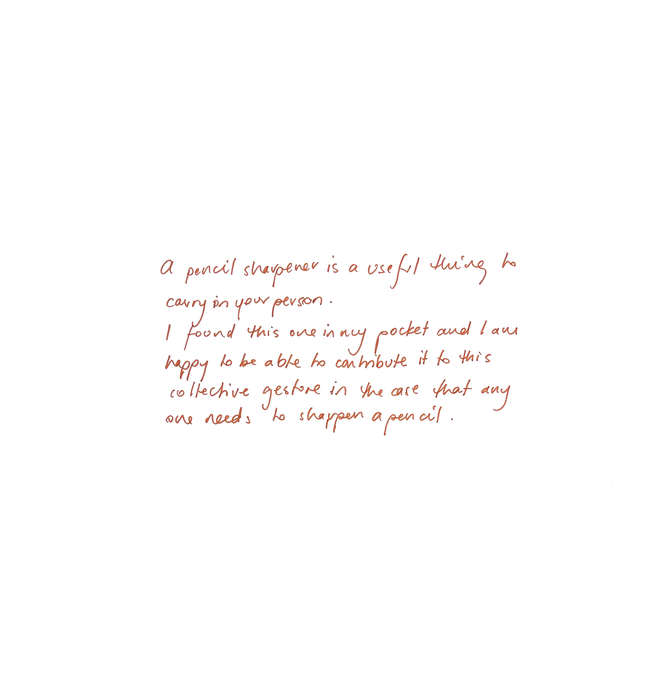 A pencil sharpener is a useful thing to
carry on your person.
I found this one in my pocket and I am
happy to be able to contribute it to this
collective gesture in the case that any
one needs to sharpen a pencil.